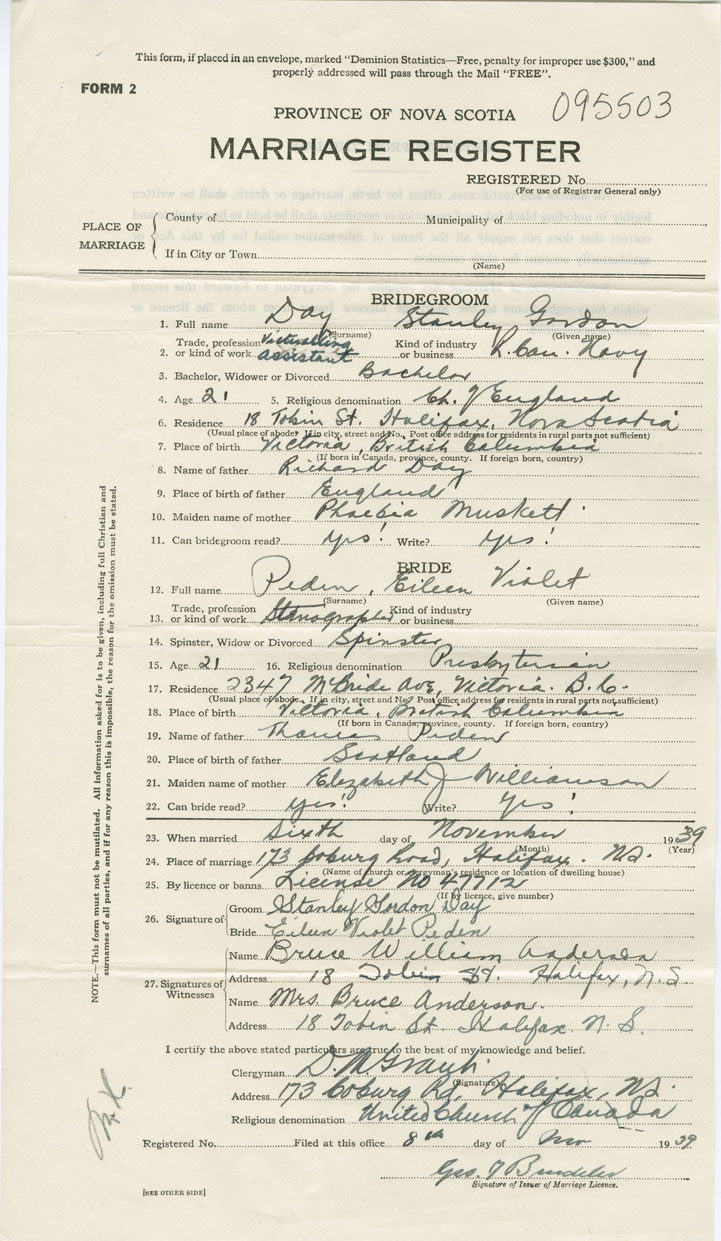 This form, if placed in an envelope, marked "Dominion Statistics—Free, penalty for improper use $300," and
properly addressed will pass through the Mail "FREE".
FORM 2
PROVINCE OF NOVA SCOTIA 095503
MARRIAGE REGISTER
REGISTERED No.
(For use of Registrar General only)
PLACE OF MARRIAGE
County of Municipality of
If in City or Town
(Name)
BRIDEGROOM
1. Full name Day Stanley Gordon
(Surname) (Given name)
2. Trade, profession or kind of work Victualling assistant Kind of industry or business R. Can. Navy
3. Bachelor, Widower or Divorced Bachelor
4. Age 21 5. Religious denomination Ch. of England
6. Residence 18 Tobin St. Halifax, Nova Scotia
(Usual place of abode. If in city, street and No. Post office address for residents in rural parts not sufficient)
7. Place of birth Victoria, British Columbia
(If born in Canada, province, county. If foreign born, country)
8. Name of father Richard Day
9. Place of birth of father England
10. Maiden name of mother Phoebia Muskett
11. Can bridegroom read? Yes! Write? Yes!
BRIDE
12. Full name Peden, Eileen Violet
(Surname) (Given name)
13. Trade, profession or kind of work Stenographer Kind of industry or business
14. Spinster, Widow or Divorced Spinster
15. Age 21 16. Religious denomination Presbyterian
17. Residence 2347 McBride Ave, Victoria. B.C.
(Usual place of abode. If in city, street and No. Post office address for residents in rural parts not sufficient)
18. Place of birth Victoria, British Columbia
(If born in Canada, province, county. If foreign born, country)
19. Name of father Thomas Peden
20. Place of birth of father Scotland
21. Maiden name of mother Elizabeth J Williamson
22. Can bride read? Yes! Write? Yes!
23. When married Sixth day of November 1939
(Month) (Year)
24. Place of marriage 173 Coburg Road, Halifax. NS.
(Name of church or clergyman's residence or location of dwelling house)
25. By licence or banns License No 47712
(If by licence, give number)
26. Signature of
Groom Stanley Gordon Day
Bride Eileen Violet Peden
27. Signatures of Witnesses
Name Bruce William Anderson
Address 18 Tobin St. Halifax, N.S
Name Mrs. Bruce Anderson.
Address 18 Tobin St Halifax N.S.
I certify the above stated particulars are true to the best of my knowledge and belief.
Clergyman D. M Grant
(Signature)
Address 173 Coburg Rd, Halifax, NS.
Religious denomination United Church of Canada
Registered No. Filed at this office 8th day of Nov 1939
Geo.
Signature of Issuer of Marriage Licence.
[SEE OTHER SIDE]
NOTE.—This form must not be mutilated. All information asked for is to be given, including full Christian and
surnames of all parties, and if for any reason this is impossible, the reason for the omission must be stated.